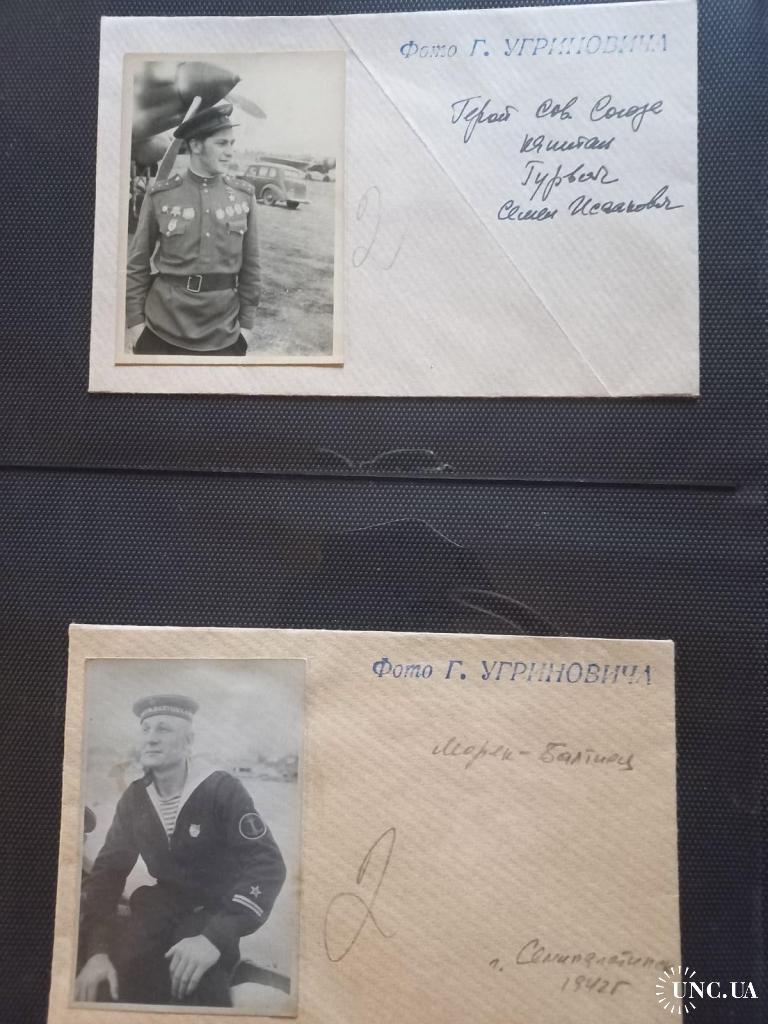 Фото Г. УГРИНОВИЧА
Герой Сов Союза
капитан
Гурвич
Семен Исаакович
2
Фото Г. УГРИНОВИЧА
Моряк-Балтиец
2
г. Семипалатинск
1942г
UNC.UA